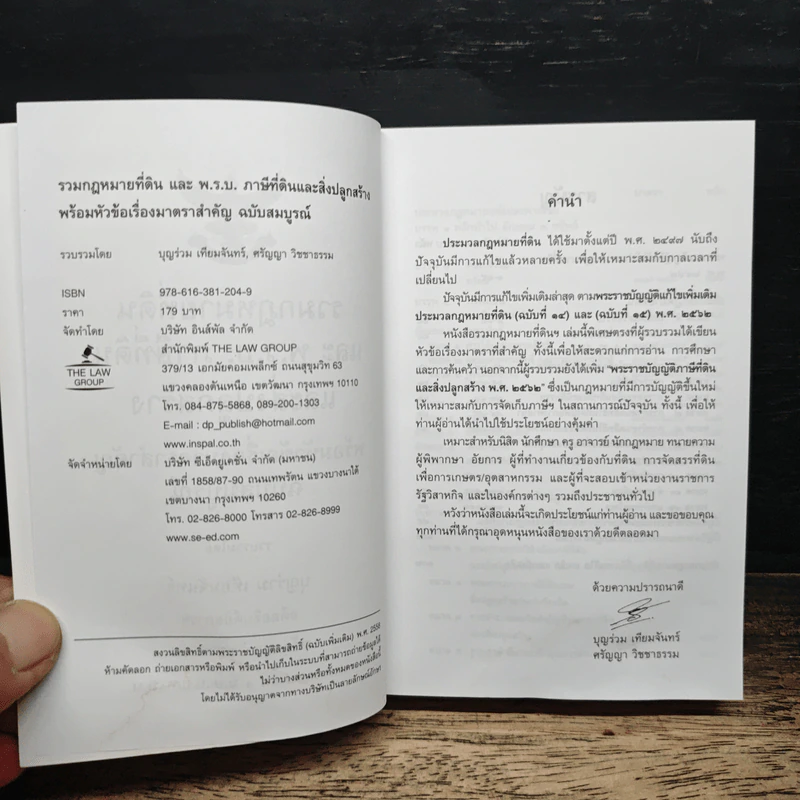 รวมกฎหมายที่ดิน และ พ.ร.บ. ภาษีที่ดินและสิ่งปลูกสร้าง
พร้อมหัวข้อเรื่องมาตราสำคัญ ฉบับสมบูรณ์
รวบรวมโดย บุญร่วม เทียมจันทร์, ศรัญญา วิชชาธรรม
ISBN 978-616-381-204-9
ราคา 179 บาท
จัดทำโดย บริษัท อินส์พัล จำกัด
สำนักพิมพ์ THE LAW GROUP
THE LAW
GROUP
379/13 เอกมัยคอมเพล็กซ์ ถนนสุขุมวิท 63
แขวงคลองตันเหนือ เขตวัฒนา กรุงเทพฯ 10110
โทร. 084-875-5868, 089-200-1303
E-mail : dp_publish@hotmail.com
www.inspal.co.th
จัดจำหน่ายโดย บริษัท ซีเอ็ดยูเคชั่น จำกัด (มหาชน)
เลขที่ 1858/87-90 ถนนเทพรัตน แขวงบางนาใต้
เขตบางนา กรุงเทพฯ 10260
โทร. 02-826-8000 โทรสาร 02-826-8999
www.se-ed.com
สงวนลิขสิทธิ์ตามพระราชบัญญัติลิขสิทธิ์ (ฉบับเพิ่มเติม) พ.ศ. 2558
ห้ามคัดลอก ถ่ายเอกสารหรือพิมพ์ หรือนำไปเก็บในระบบที่สามารถถ่ายข้อมูลได้
ไม่ว่าบางส่วนหรือทั้งหมดของหนังสือนี้
โดยไม่ได้รับอนุญาตจากทางบริษัทเป็นลายลักษณ์อักษร
คำนำ
ประมวลกฎหมายที่ดิน ได้ใช้มาตั้งแต่ปี พ.ศ. ๒๔๙๗ นับถึง
ปัจจุบันมีการแก้ไขแล้วหลายครั้ง เพื่อให้เหมาะสมกับกาลเวลาที่
เปลี่ยนไป
ปัจจุบันมีการแก้ไขเพิ่มเติมล่าสุด ตามพระราชบัญญัติแก้ไขเพิ่มเติม
ประมวลกฎหมายที่ดิน (ฉบับที่ ๑๔) และ (ฉบับที่ ๑๕) พ.ศ. ๒๕๖๒
หนังสือรวมกฎหมายที่ดินฯ เล่มนี้พิเศษตรงที่ผู้รวบรวมได้เขียน
หัวข้อเรื่องมาตราที่สำคัญ ทั้งนี้เพื่อให้สะดวกแก่การอ่าน การศึกษา
และการค้นคว้า นอกจากนี้ผู้รวบรวมยังได้เพิ่ม “พระราชบัญญัติภาษีที่ดิน
และสิ่งปลูกสร้าง พ.ศ. ๒๕๖๒” ซึ่งเป็นกฎหมายที่มีการบัญญัติขึ้นใหม่
ให้เหมาะสมกับการจัดเก็บภาษีฯ ในสถานการณ์ปัจจุบัน ทั้งนี้ เพื่อให้
ท่านผู้อ่านได้นำไปใช้ประโยชน์อย่างคุ้มค่า
เหมาะสำหรับนิสิต นักศึกษา ครู อาจารย์ นักกฎหมาย ทนายความ
ผู้พิพากษา อัยการ ผู้ที่ทำงานเกี่ยวข้องกับที่ดิน การจัดสรรที่ดิน
เพื่อการเกษตร/อุตสาหกรรม และผู้ที่จะสอบเข้าหน่วยงานราชการ
รัฐวิสาหกิจ และในองค์กรต่างๆ รวมถึงประชาชนทั่วไป
หวังว่าหนังสือเล่มนี้จะเกิดประโยชน์แก่ท่านผู้อ่าน และขอขอบคุณ
ทุกท่านที่ได้กรุณาอุดหนุนหนังสือของเราด้วยดีตลอดมา
ด้วยความปรารถนาดี
บุญร่วม เทียมจันทร์
ศรัญญา วิชชาธรรม